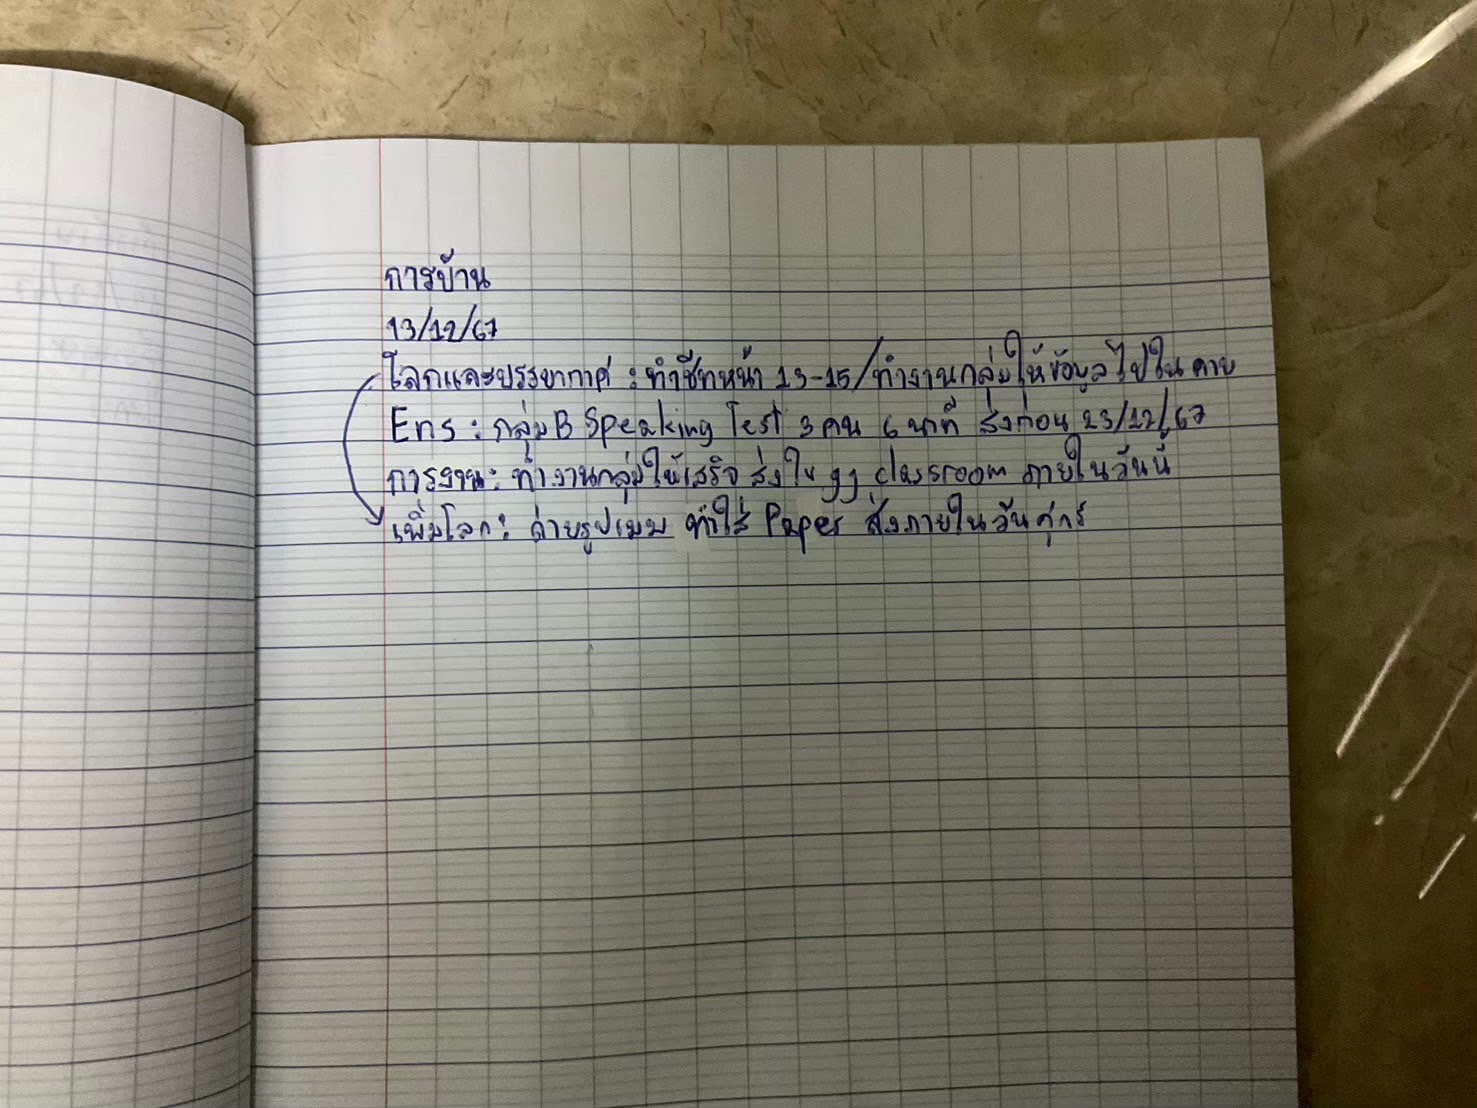 การบ้าน
13/12/67
โลกและบรรยากาศ : ทำชีทหน้า 13-15/ทำงานกลุ่มให้ข้อมูลไปในคาบ
Eng : กลุ่ม B Speaking Test 3 คน 6 นาที ส่งก่อน 23/12/67
การงาน : ทำงานกลุ่มให้เสร็จ ส่งใน gg classroom ภายในวันนี้
เพิ่มโลก : ถ่ายรูปเมฆ ทำใส่ Paper ส่งภายในวันศุกร์